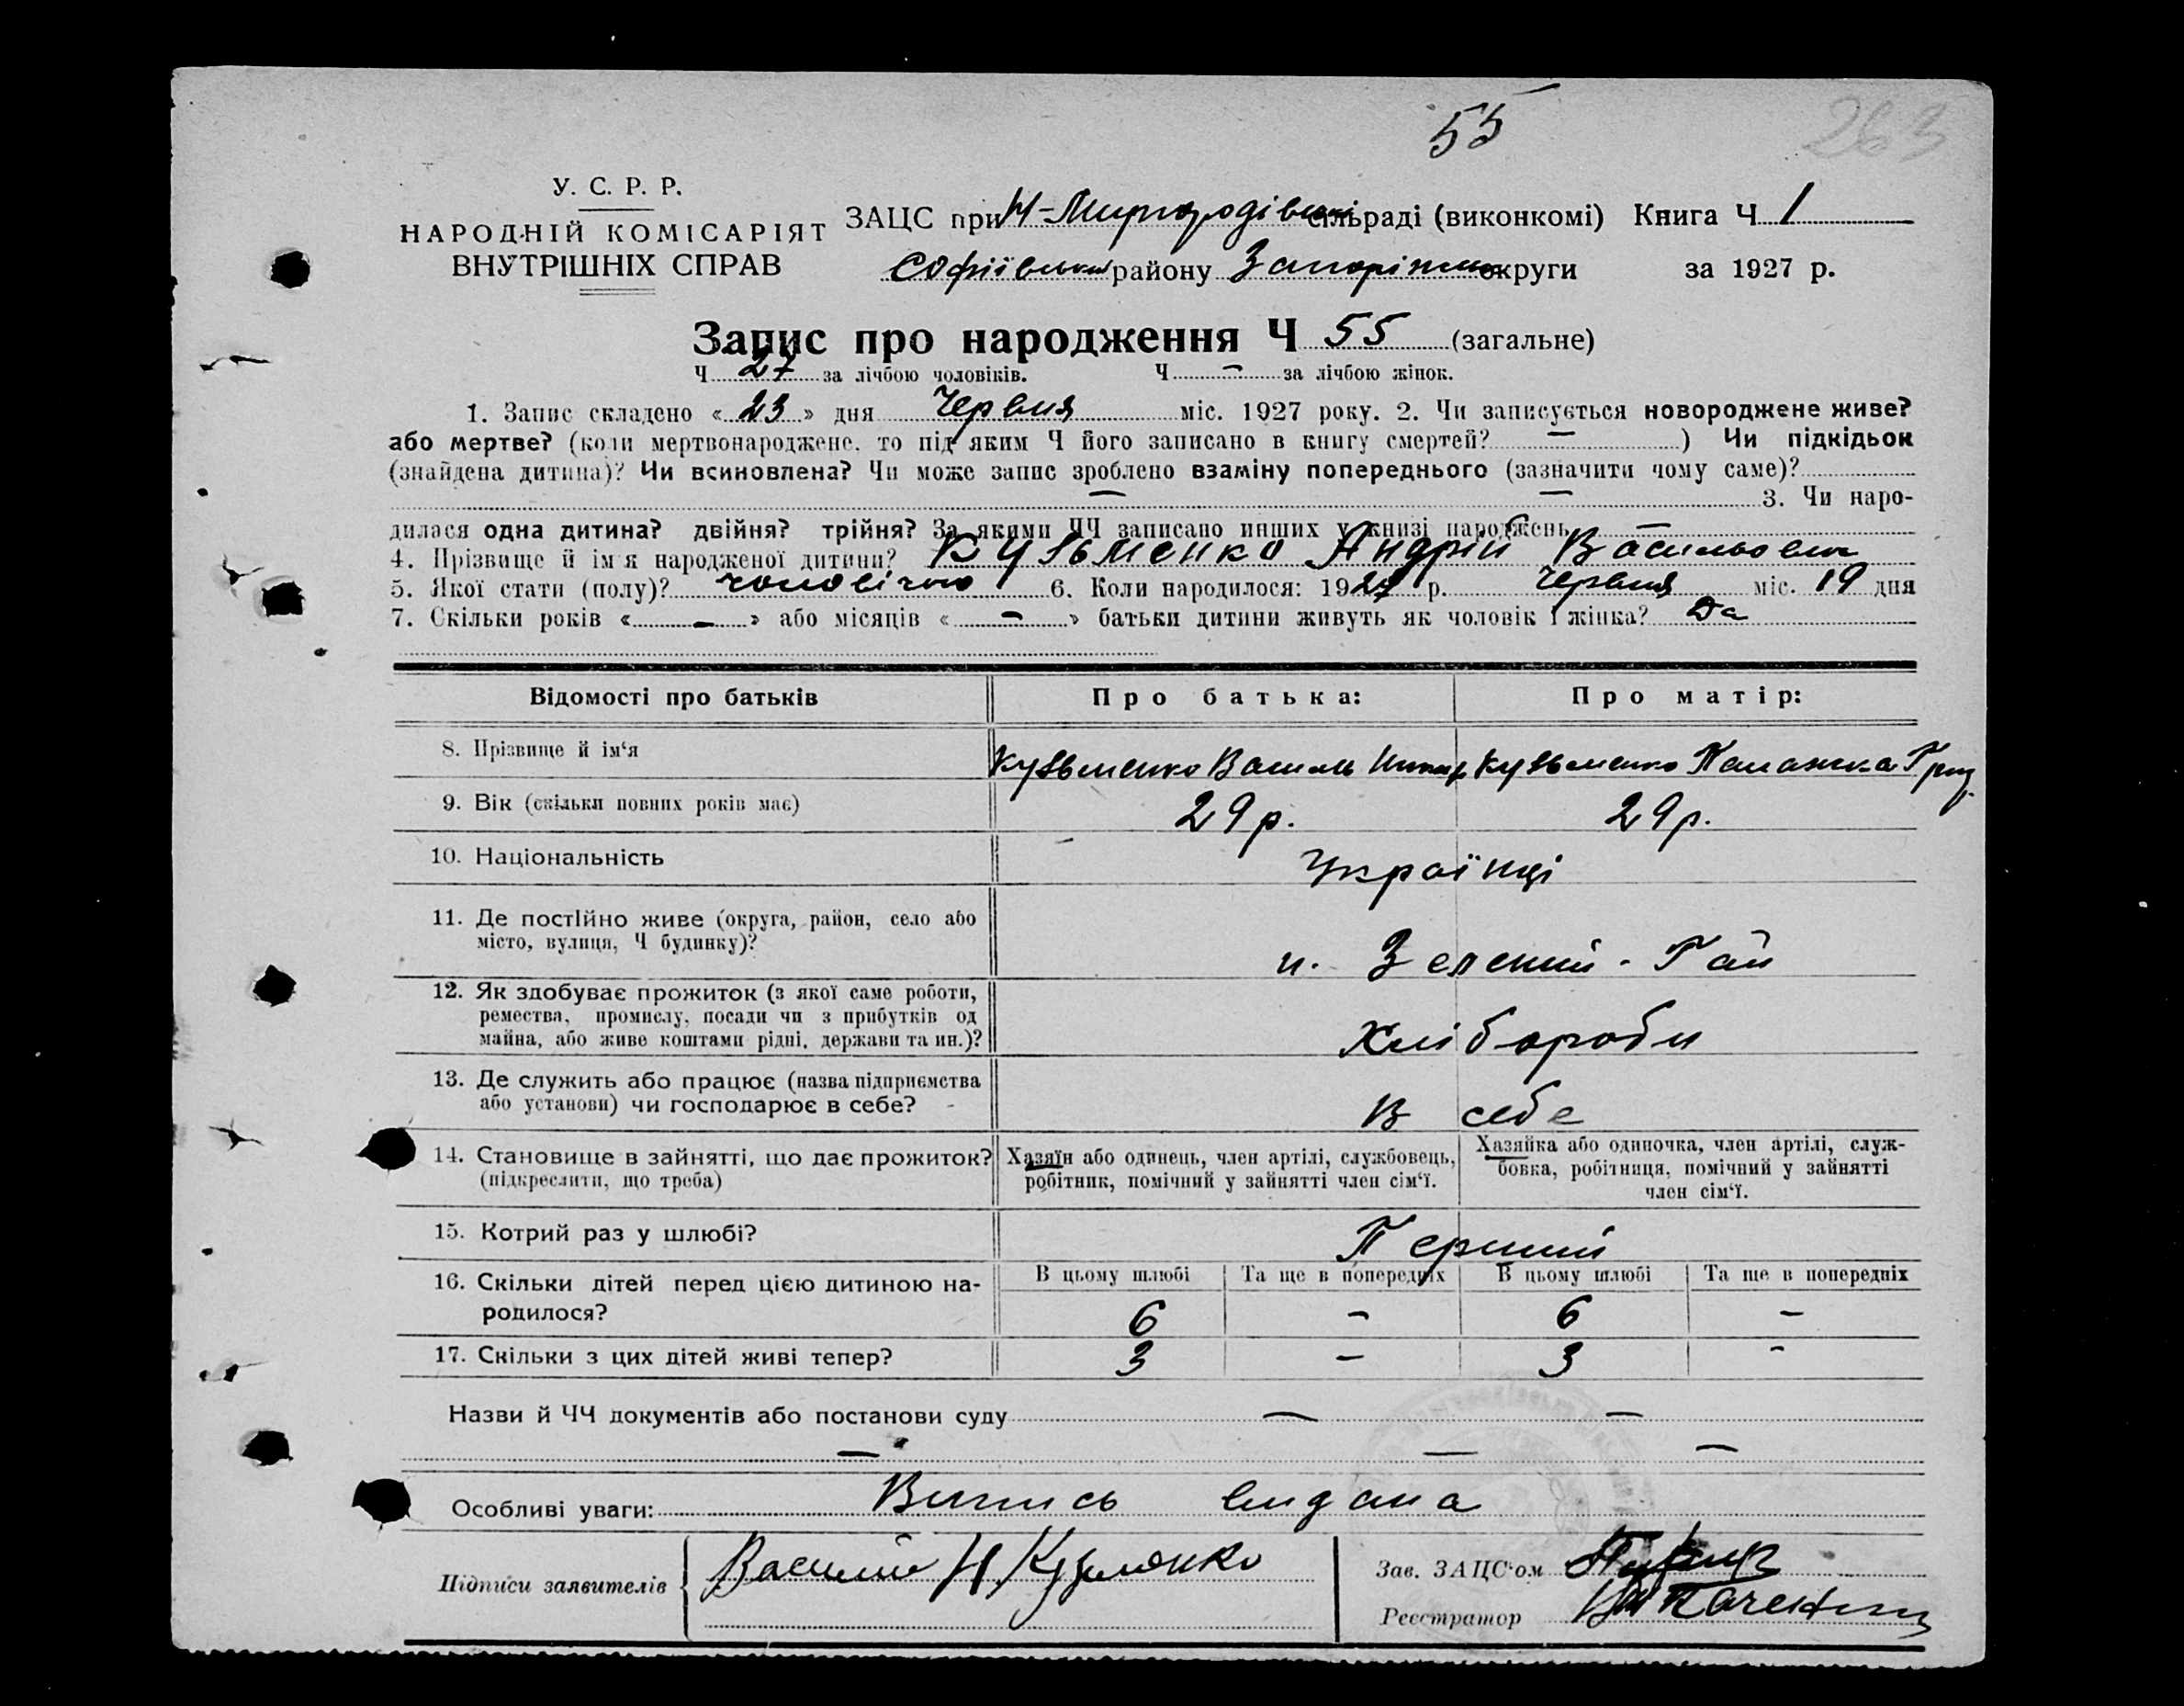 55
263
У. С. Р. Р.
НАРОДНІЙ КОМІСАРІЯТ
ВНУТРІШНІХ СПРАВ
ЗАЦС при Н-Миргородівськ сільраді (виконкомі) Книга Ч 1
Софіївськ району Запоріжськ округи за 1927 р.
Запис про народження Ч 55 (загальне)
Ч 27 за лічбою чоловіків. Ч — за лічбою жінок.
1. Запис складено « 23 » дня Червня міс. 1927 року. 2. Чи записується новороджене живе?
або мертве? (коли мертвонароджене, то під яким Ч його записано в книгу смертей? — ) Чи підкідьок
(знайдена дитина)? Чи всиновлена? Чи може запис зроблено взаміну попереднього (зазначити чому саме)?
— — 3. Чи наро-
дилася одна дитина? двійня? трійня? За якими ЧЧ записано инших у книзі народжень —
4. Прізвище й ім'я народженої дитини? Кузьменко Андрій Васильович
5. Якої стати (полу)? чоловічою 6. Коли народилося: 1927 р. Червня міс. 19 дня
7. Скільки років « — » або місяців « — » батьки дитини живуть як чоловік і жінка? Да
Відомості про батьків Про батька: Про матір:
8. Прізвище й ім‘я Кузьменко Василь Кузьменко Палажка Григ.
9. Вік (скільки повних років має) 29 р. 29 р.
10. Національність Українці
11. Де постійно живе (округа, район, село або
місто, вулиця, Ч будинку)? п. Зелений-Гай
12. Як здобуває прожиток (з якої саме роботи,
ремества, промислу, посади чи з прибутків од
майна, або живе коштами рідні, держави та ин.)? Хлібороби
13. Де служить або працює (назва підприємства
або установи) чи господарює в себе? В себе
14. Становище в зайнятті, що дає прожиток?
(підкреслити, що треба)
Хазяїн або одинець, член артілі, службовець,
робітник, помічний у зайнятті член сім‘ї.
Хазяйка або одиночка, член артілі, служ-
бовка, робітниця, помічний у зайнятті
член сім‘ї.
15. Котрий раз у шлюбі? Перший
В цьому шлюбі Та ще в попередніх В цьому шлюбі Та ще в попередніх
16. Скільки дітей перед цією дитиною на-
родилося? 6 — 6 —
17. Скільки з цих дітей живі тепер? 3 — 3 -
Назви й ЧЧ документів або постанови суду — —
— — —
Особливі уваги: Випись видана
Підписи заявителів Василий Н Кузменко
Зав. ЗАЦС‘ом
Реєстратор